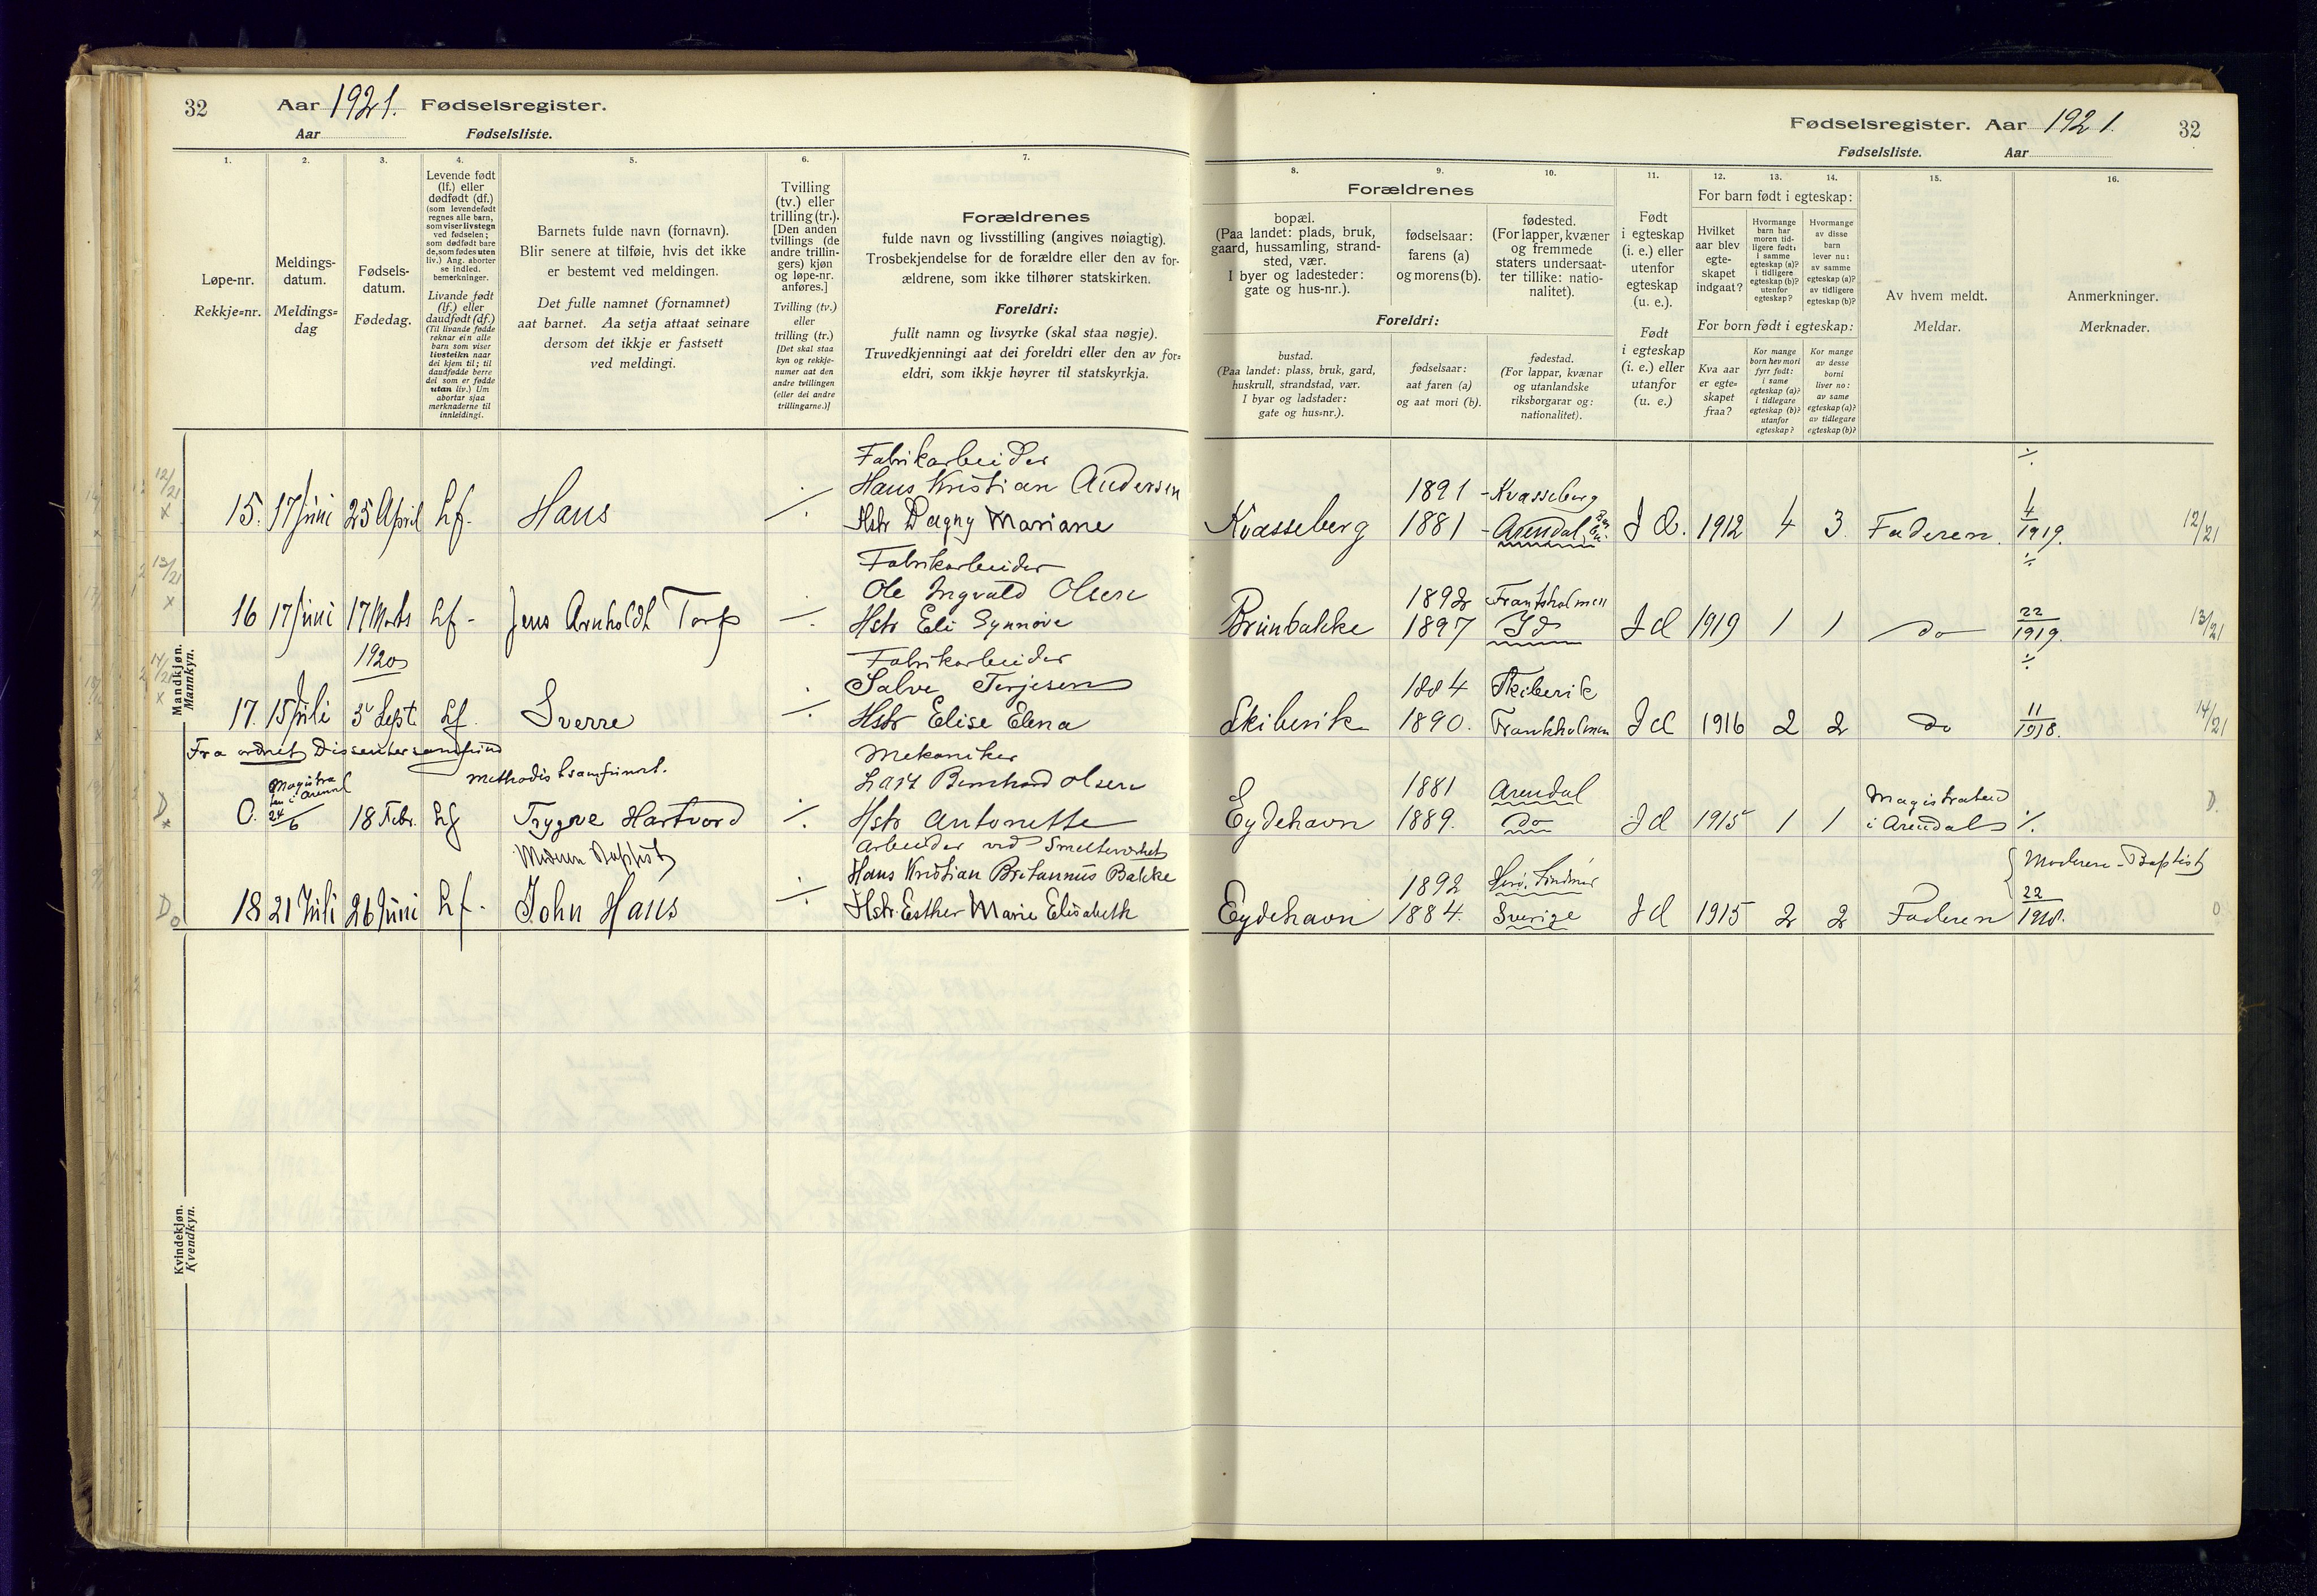 32
Aar 1921. Fødselsregister.
Aar Fødselsliste.
1.
2.
3.
4.
5.
6.
7.
Løpe-nr.
Rekkje=nr.
Meldings-
datum.
Meldings=
dag
Fødsels-
datum.
Fødedag.
Levende født
(lf.) eller
dødfødt (df.)
(som levendefødt
regnes alle barn,
som viser livstegn
ved fødselen;
som dødfødt bare
de, som fødes uten
liv.) Ang. aborter
se indled.
bemerkninger.
Livande født
(lf.) eller
daudfødt (df.)
(Til livande fødde
reknar ein alle
barn som viser
livsteikn naar
dei kjem til; til
daudfødde berre
dei som er fødde
utan liv.) Um
abortar sjaa
merknaderne til
innleidingi.
Barnets fulde navn (fornavn).
Blir senere at tilføie, hvis det ikke
er bestemt ved meldingen.
Det fulle namnet (fornamnet)
aat barnet. Aa setja attaat seinare
dersom det ikkje er fastsett
ved meldingi.
Tvilling
(tv.) eller
trilling (tr.).
[Den anden
tvillings (de
andre trillin-
gers) kjøn
og løpe-nr.
anføres.]
Tvilling (tv.)
eller
trilling (tr.)
[Det skal staa
kyn og rekkje-
numer aat den
andre tvillingen
(eller dei andre
trillingarne.)]
Forældrenes
fulde navn og livsstilling (angives nøiagtig).
Trosbekjendelse for de forældre eller den av for-
ældrene, som ikke tilhører statskirken.
Foreldri:
fullt namn og livsyrke (skal staa nøgje).
Truvedkjenningi aat dei foreldri eller den av for=
eldri, som ikkje høyrer til statskyrkja.
Mandkjøn.
Mannkyn.
Fabrikarbeider
12/21 x 15. 17 Juni 25 April Lf. Hans ÷ Hans Kristian Andersen
Hstr Dagny Mariane
Fabrikarbeider
13/21 x 16 17 Juni 17 Marts Lf - Jens Arnholdt Torp ÷ Ole Ingvald Olsen
Hstr Eli Synnøve
1920
Fabrikarbeider
14/21 x 17. 15 Juli 3 Sept. Lf. Sverre ÷ Salve Terjesen
Hstr Elise Elena
Fra ordnet Dissentersamfund
Methodistsamfundet.
Mekaniker
Lars Bernhard Olsen
D x 0. 24/6 18 Febr. Lf Trygve Hartvard ÷ Hstr Antonette
Arbeider ved Smelteverket
Moderen Baptist
Hans Kristian Britannus Bakke
D 18 21 Juli 26 Juni Lf - John Hans ÷ Hstr. Esther Marie Elisabeth
Kvindekjøn.
Kvendkyn.
Fødselsregister. Aar 1921.
32
Fødselsliste. Aar
8.
9.
10.
11.
12.
13.
14.
15.
16.
Forældrenes
bopæl.
(Paa landet: plads, bruk,
gaard, hussamling, strand-
sted, vær.
I byer og ladesteder:
gate og hus-nr.).
fødselsaar:
farens (a)
og morens (b).
fødested.
(For lapper, kvæner
og fremmede
staters undersaat-
ter tillike: natio-
nalitet).
Foreldri:
bustad.
(Paa landet: plass, bruk, gard,
huskrull, strandstad, vær.
I byar og ladstader:
gate og hus=nr.).
fødselsaar:
aat faren (a)
og aat mori (b).
fødestad.
(For lappar, kvænar
og utanlandske
riksborgarar og:
nationalitet).
Født
i egteskap
(i. e.) eller
utenfor
egteskap
(u. e.).
Født
i egteskap
(i. e.) eller
utanfor
(u. e.)
For barn født i egteskap:
Hvilket
aar blev
egte-
skapet
indgaat?
Hvormange
barn har
moren tid-
ligere født:
i samme
egteskap (a)?
i tidligere
egteskap (b)?
utenfor
egteskap?
Hvormange
av disse
barn
lever nu:
av samme
egteskap (a)?
av tidligere
egteskap (b)?
For born født i egteskap:
Kva aar
er egte=
skapet
fraa?
Kor mange
born hev mori
fyrr født:
i same
egteskap (a)?
i tidlegare
egteskap (b)?
utanfor
egteskap?
Kor mange
av desse
borni
liver no:
av same
egteskap (a)?
av tidlegare
egteskap (b)?
Av hvem meldt.
Meldar.
Anmerkninger.
Merknader.
÷
1891 - Kvasseberg
Kvasseberg 1881 - Arendal 1912 4 3. Faderen. 4/1919. 12/21
÷
1892 Frantsholmen
Brünbakke 1897 1919 1 1 do 22/1919. 13/21
÷
1884 Skiberik
Skiberik 1890. Frankholmen 1916 2 2 do 11/1918. 14/21
1881 Arendal Magistraten
Eydehavn 1889. do 1915 1 1 i Arendal ÷ D.
Moderen - Baptist
1892
Eydehavn 1884. Sverige 1915 2 2 Faderen 22/1918.